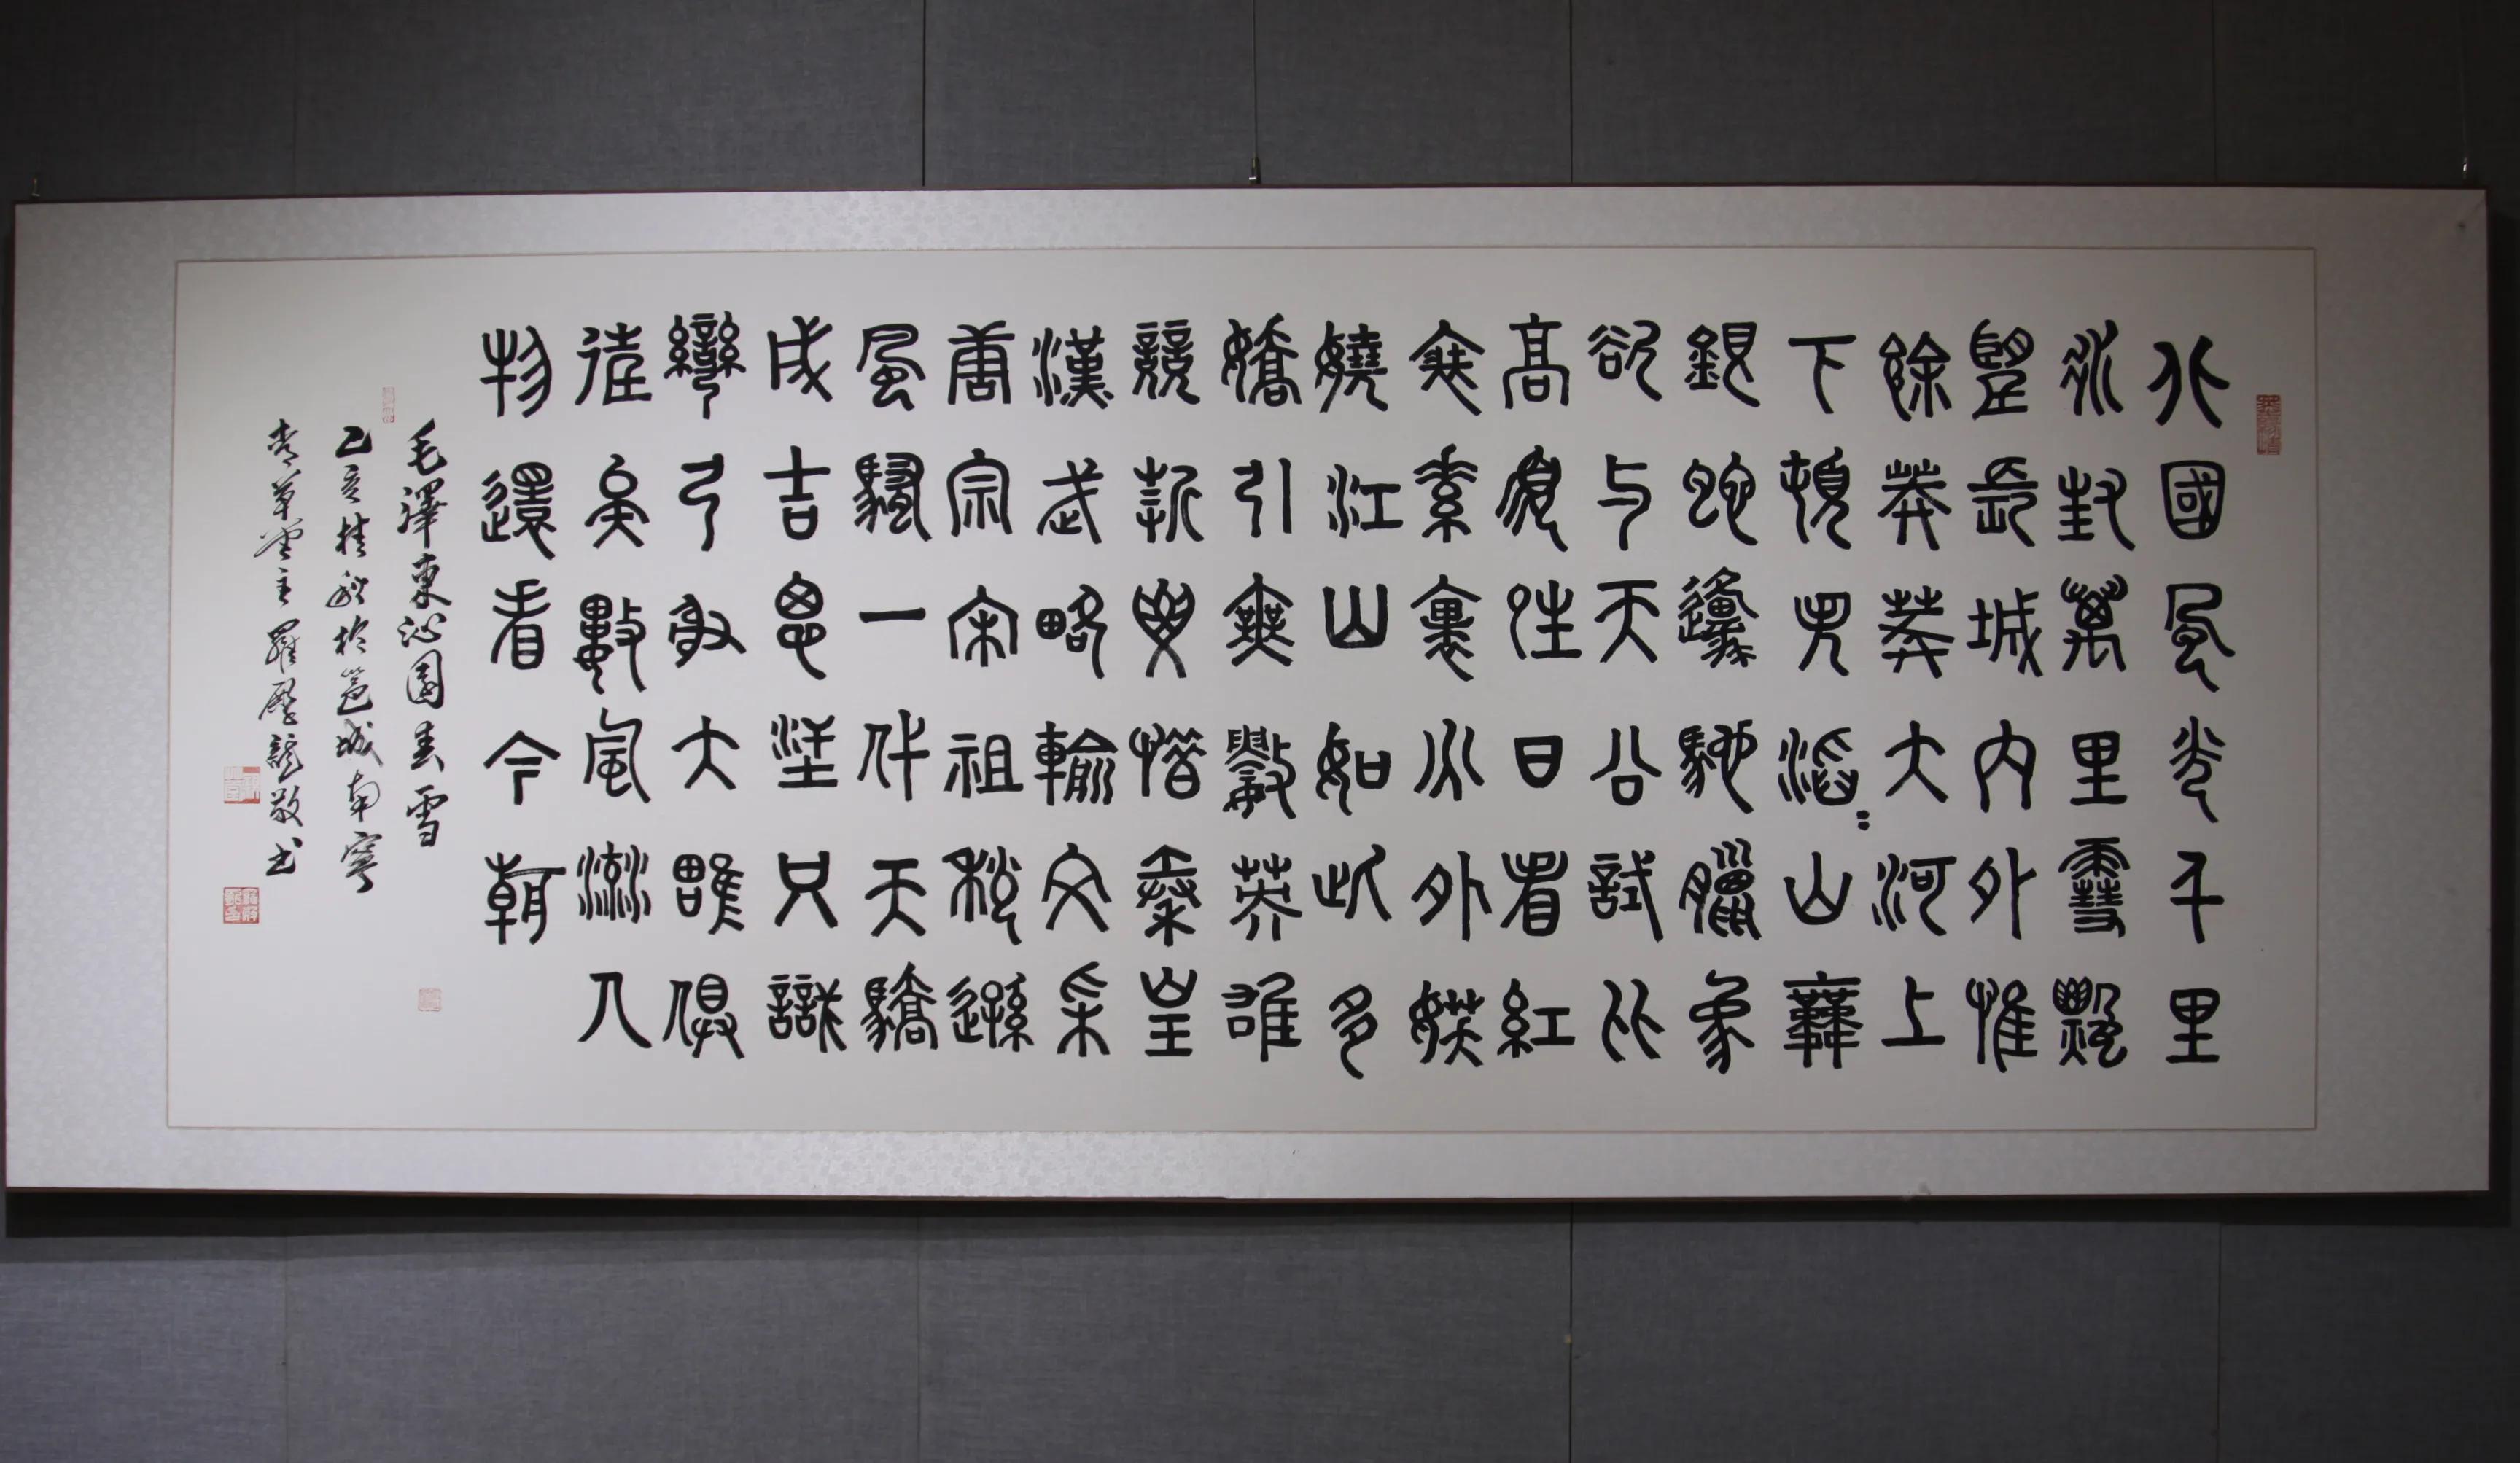 北國風光千里
冰封萬里雪飄
望長城內外惟
餘莽莽大河上
下頓失滔〻山舞
銀蛇原馳蠟象
欲与天公試比
高須晴日看紅
裝素裹分外妖
嬈江山如此多
嬌引無數英雄
競折腰惜秦皇
漢武略輸文采
唐宗宋祖稍遜
風騷一代天驕
成吉思汗只識
彎弓射大雕俱
往矣數風流人
物還看今朝
毛澤東沁園春雪
己亥桂秋於邕城南寧
草堂主羅歷龍敬书